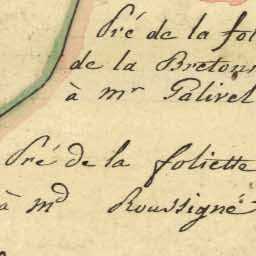 Pré de la fol
de la Breton
à mr Palivel
Pré de la foliette
à md Roussigné